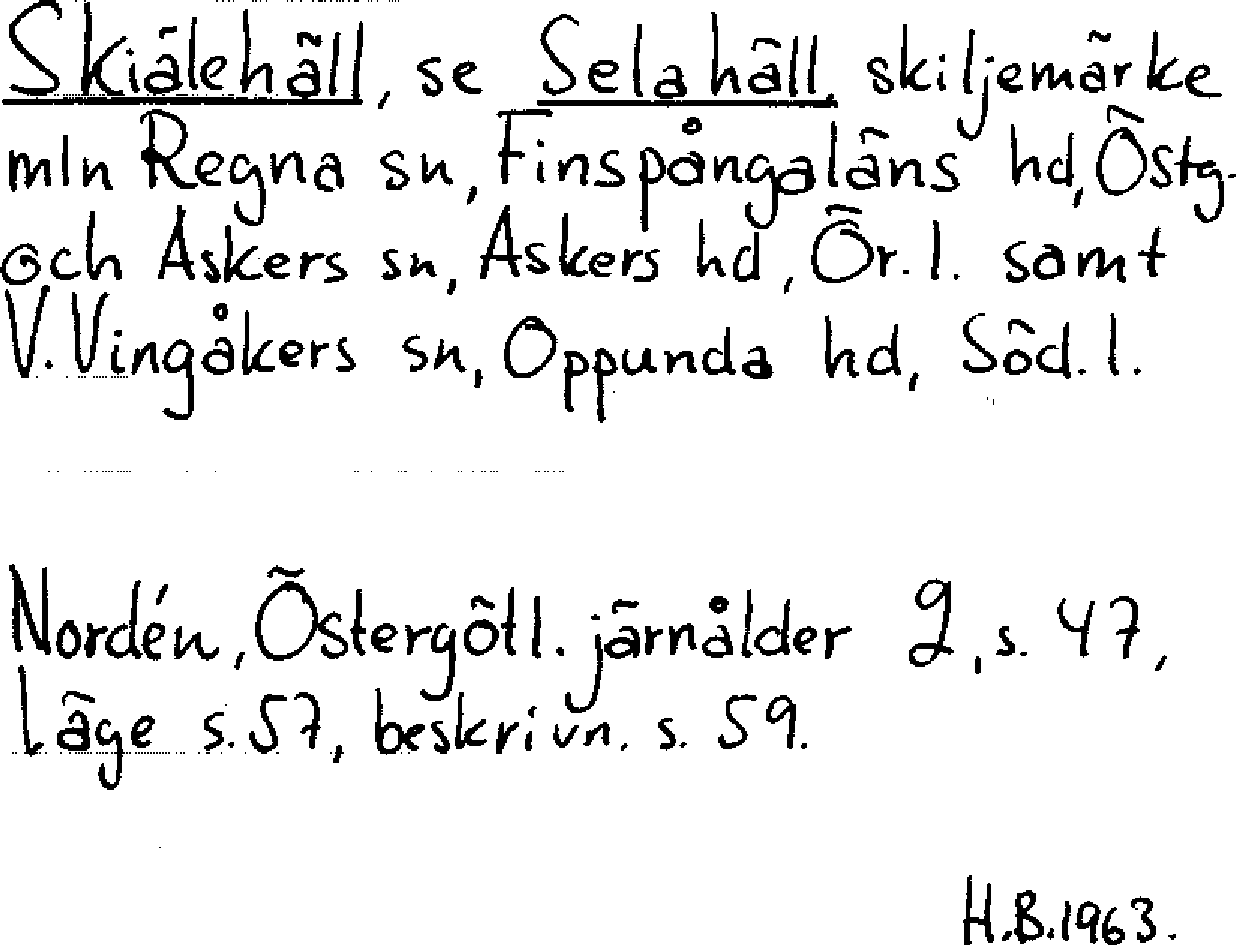 Skiälehäll, se Sela häll, skiljemärke
mln Regna sn, Finspångaläns hd, Östg.
och Askers sn, Askers hd, Ör. l. samt
V. Vingåkers sn, Oppunda hd, Söd. l.
Nordén, Östergötl. järnålder 2, s. 47,
Läge s. 57, beskrivn. s. 59.
H.B. 1963.